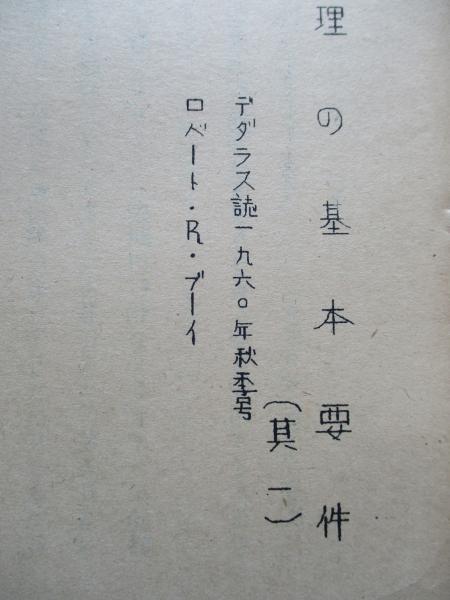 理の基本要件
(其一)
デダラス誌一九六〇年秋季号
ロバート・R・ブーイ